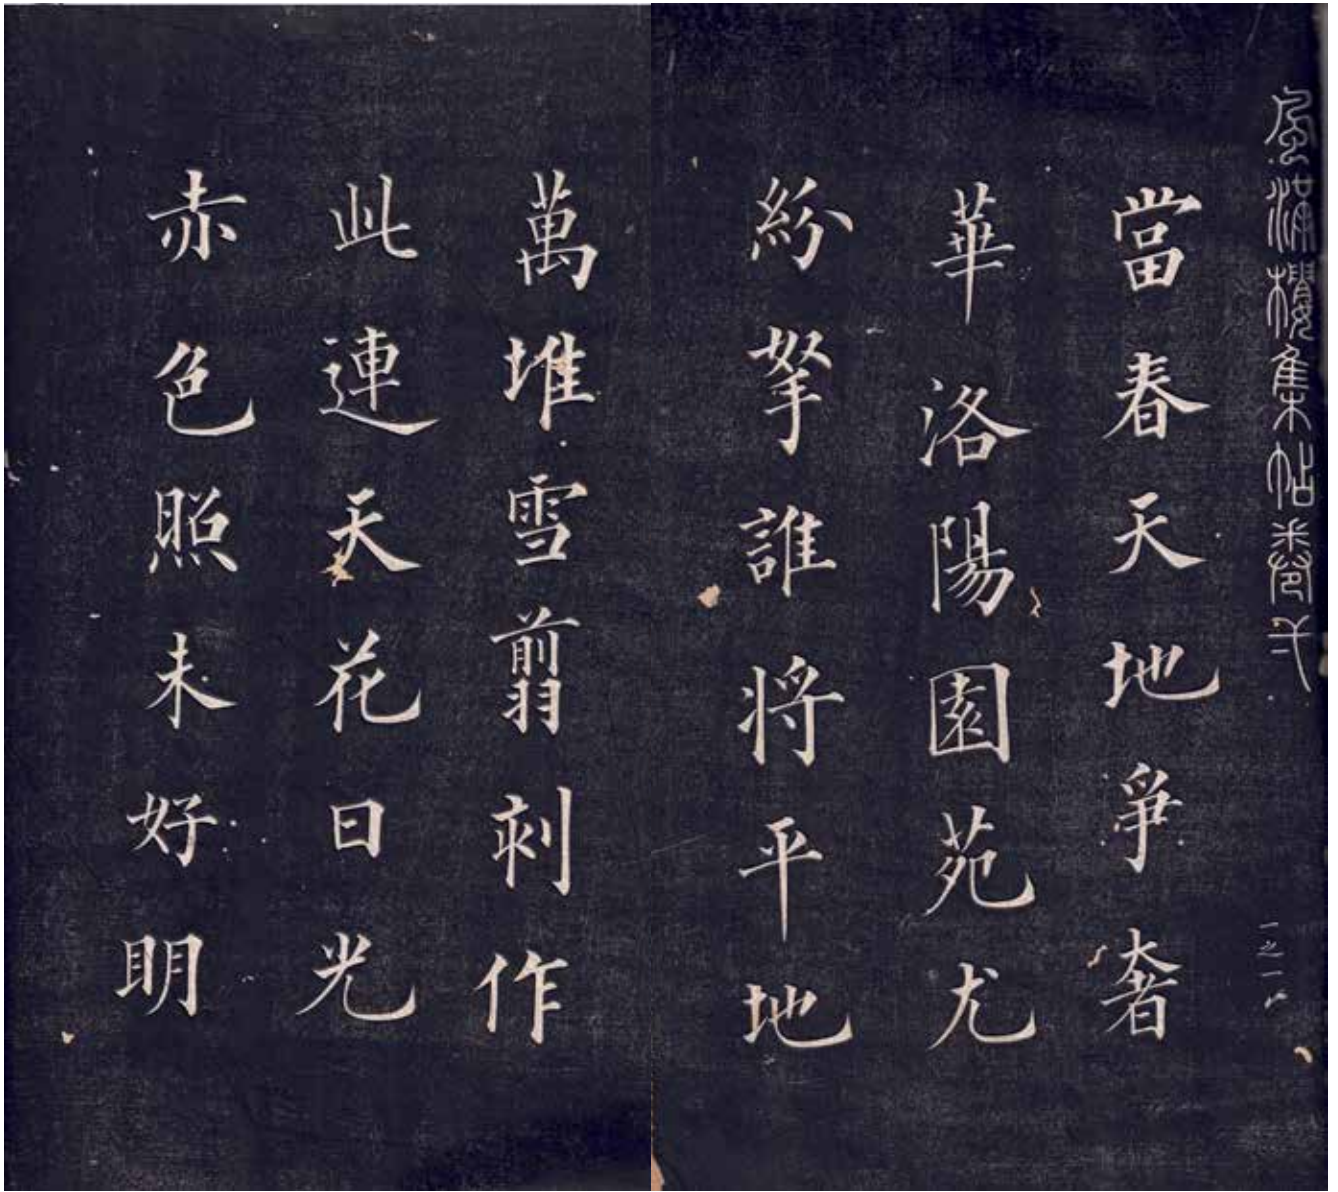 風滿樓集帖卷
一之一
當春天地爭奢
華洛陽園苑尤
紛拏誰將平地
萬堆雪翦刻作
此連天花日光
赤色照未好明